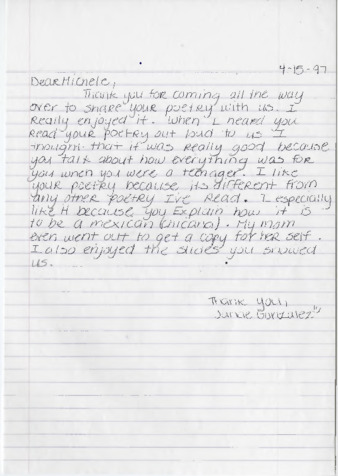 4-15-97
Dear Michele,
Thank you for coming all the way
over to share your poetry with us. I
Really enjoyed it. When I heard you
Read your poetry out loud to us I
thought that it was really good because
you talk about how everything was for
you when you were a teenager. I like
your poetry because its different from
any other poetry I've Read. I especially
like it because you Explain how it is
to be a mexican (chicana). My mom
even went out to get a copy for her self.
I also enjoyed the slides you showed
us.
Thank you,
Gonzalez